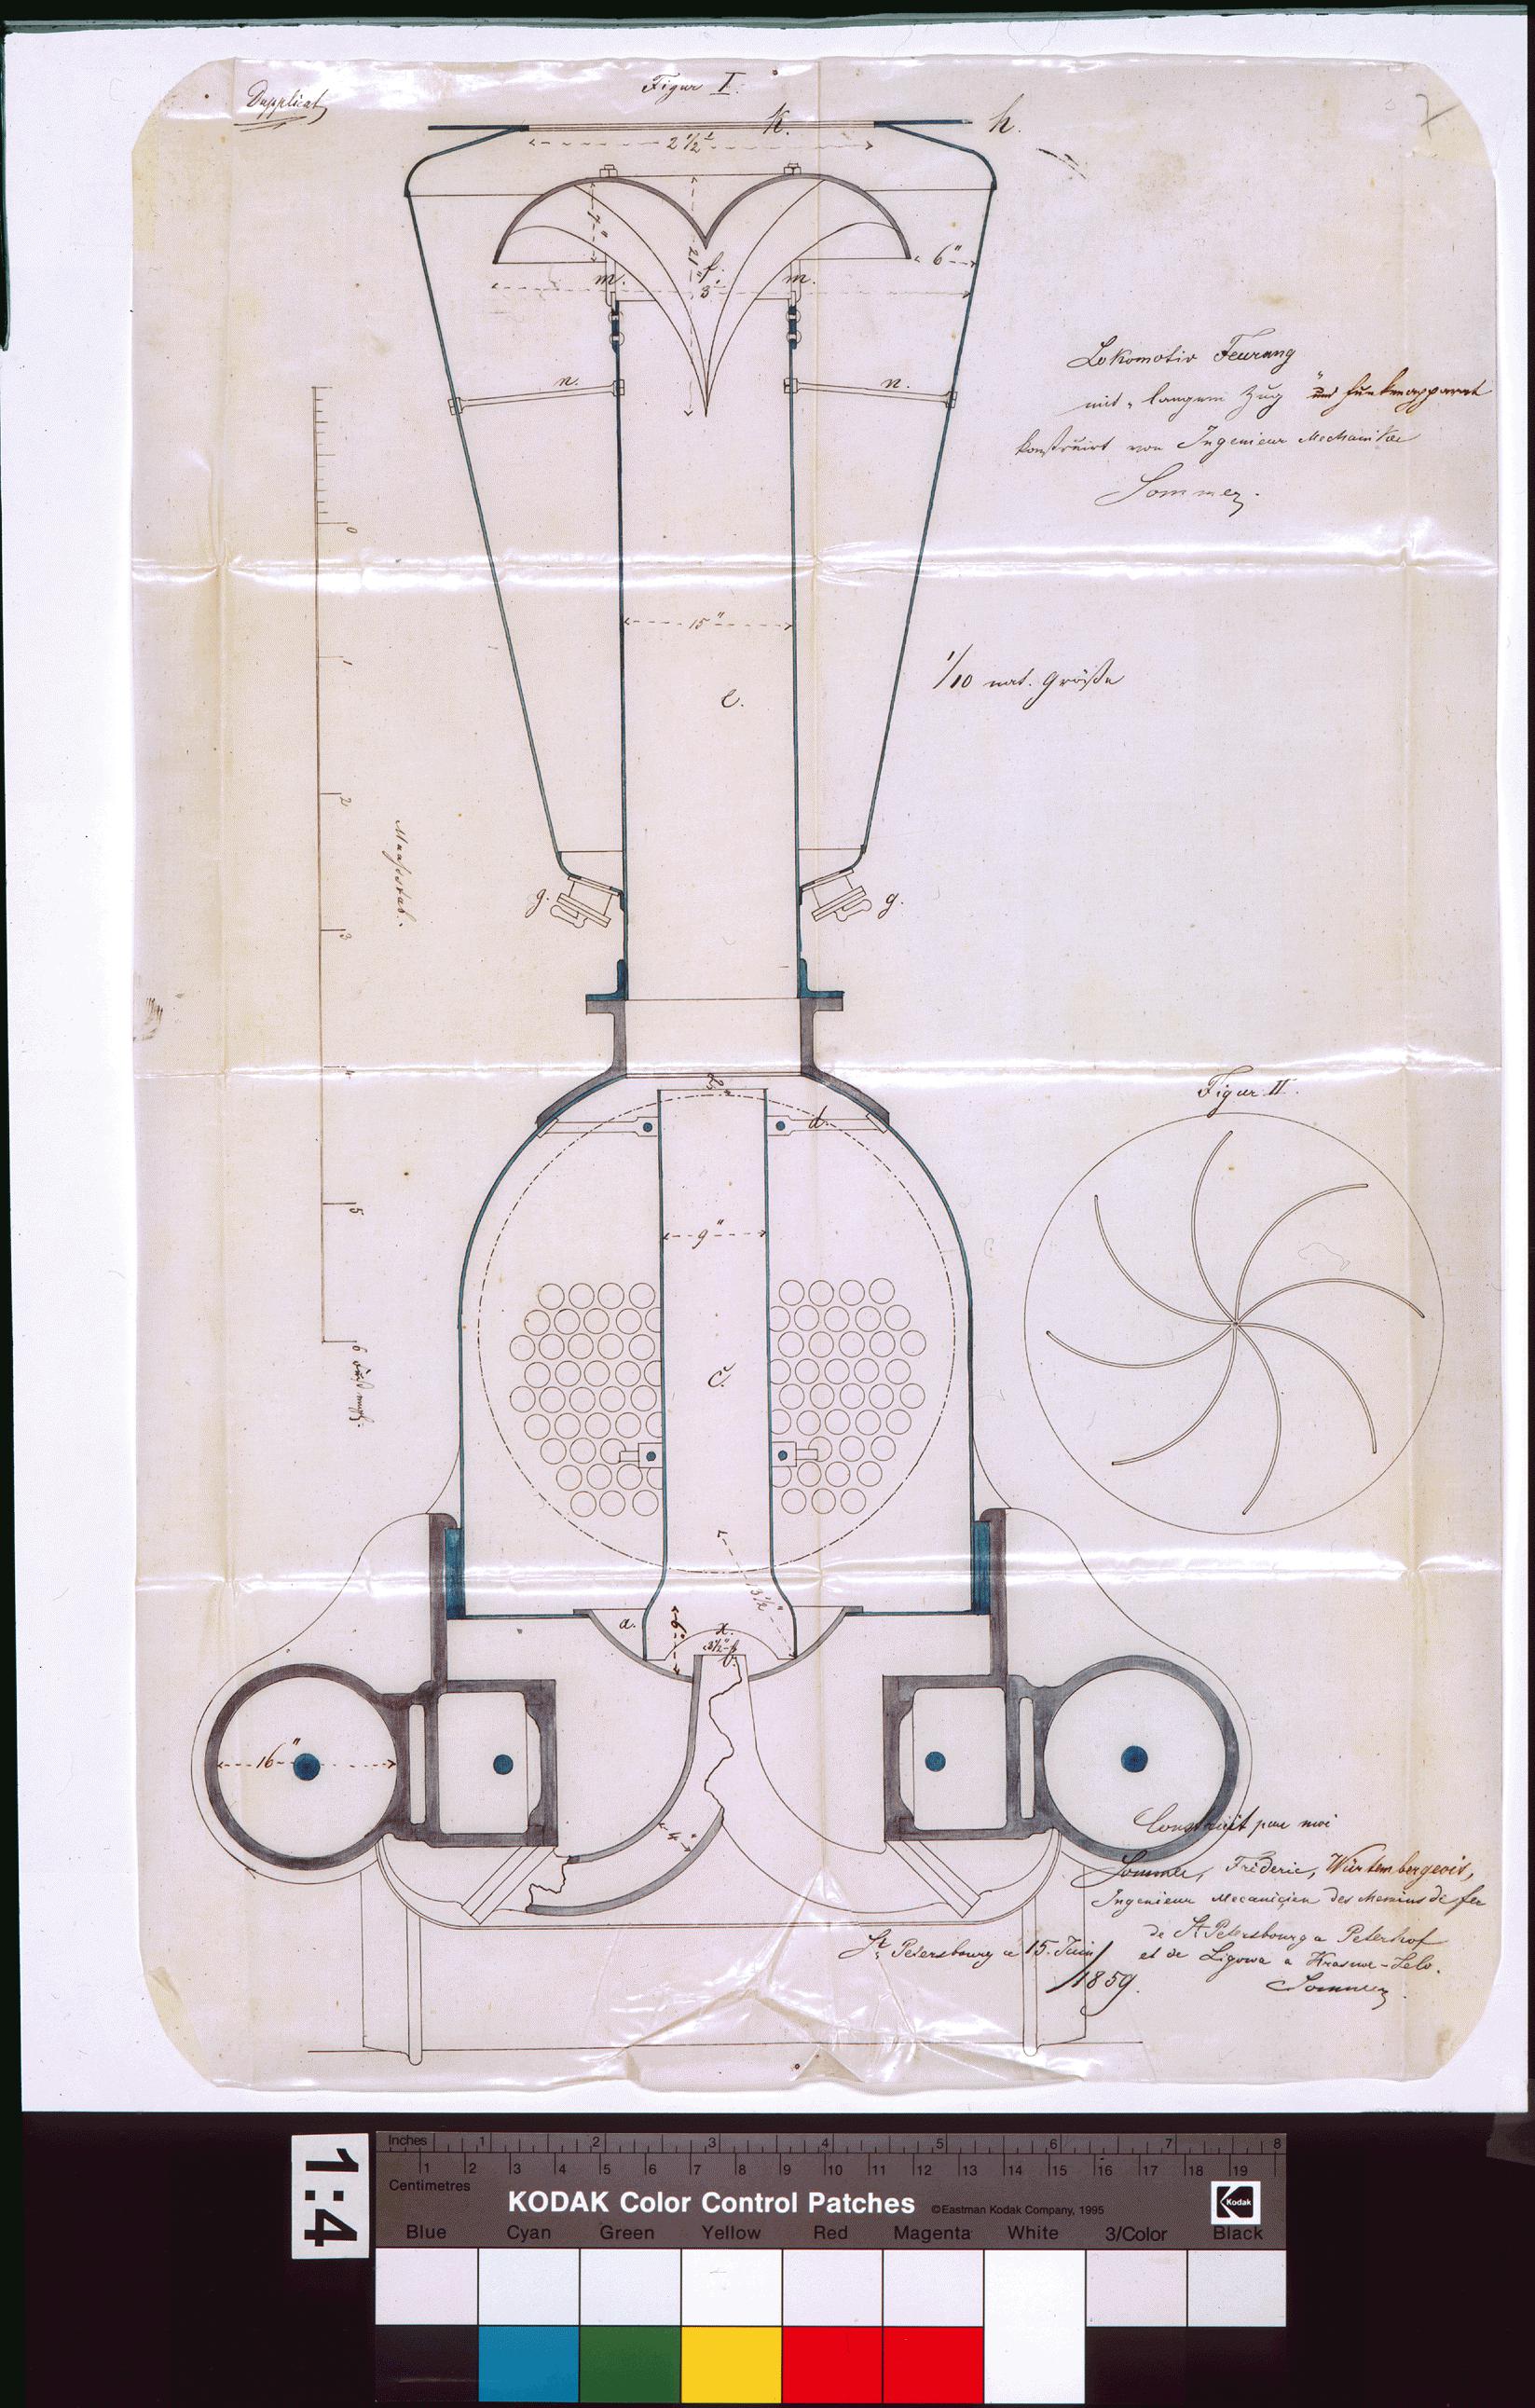 Dupplicat
Figur I.
7
k.
h.
2 1/2'
7"
21"
f.
6"
m.
m.
3'
n.
n.
Lokomotiv Feurung
mit langem Zug und Funkenapparat
konstruirt von Ingenieur Mechaniker
Sommer.
0
1
2
3
4
5
6 Fuß engl.
Maaßstab.
15"
e.
1/10 nat. Größe
g.
g.
3"
d.
Figur II.
9"
c.
13 1/2"
a.
6"
x.
3 1/2"
b.
16"
4"
Construit par moi
Sommer, Fréderic, Würtembergeois,
Ingenieur Mecaniçien des chemins de fer
de St Petersbourg a Peterhof
et de Ligowa a Krasnoe-Selo.
St Petersbourg a 15. Juin/
1859.
Sommer
1:4
Inches 1 2 3 4 5 6 7 8
1 2 3 4 5 6 7 8 9 10 11 12 13 14 15 16 17 18 19
Centimetres
KODAK Color Control Patches ©Eastman Kodak Company, 1995
Kodak
Blue Cyan Green Yellow Red Magenta White 3/Color Black